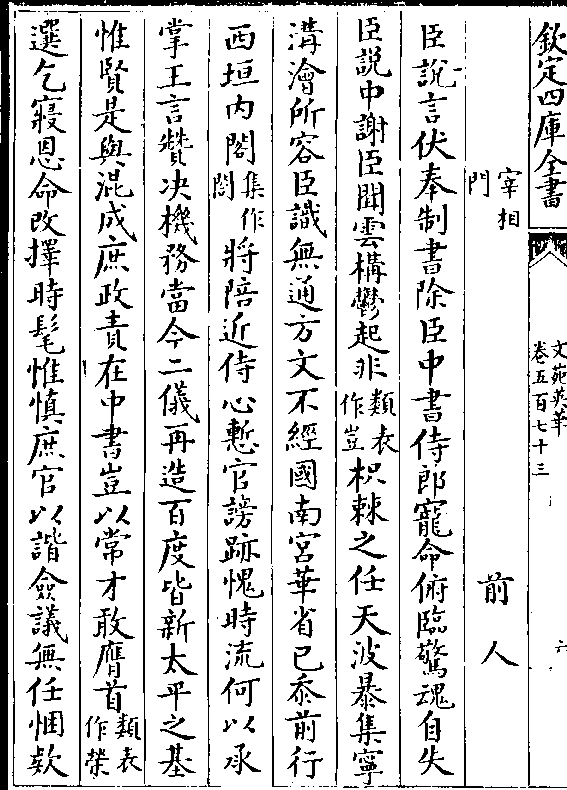 欽定四庫全書
文苑英華
卷五百七十三
六
宰相
門
前人
臣說言伏奉制書除臣中書侍郎寵命俯臨驚魂自失
臣說中謝臣聞雲構鬱起非類表作豈枳棘之任天波暴集寧
溝澮所容臣識無通方文不經國南宮華省已忝前行
西垣内閣集作閤將陪近侍心慙官謗跡愧時流何以承
掌王言贊决機務當今二儀再造百度皆新太平之基
惟賢是與混成庶政責在中書豈以常才敢膺首類表作榮
選乞寢恩命改擇時髦惟慎庶官以諧僉議無任悃欵